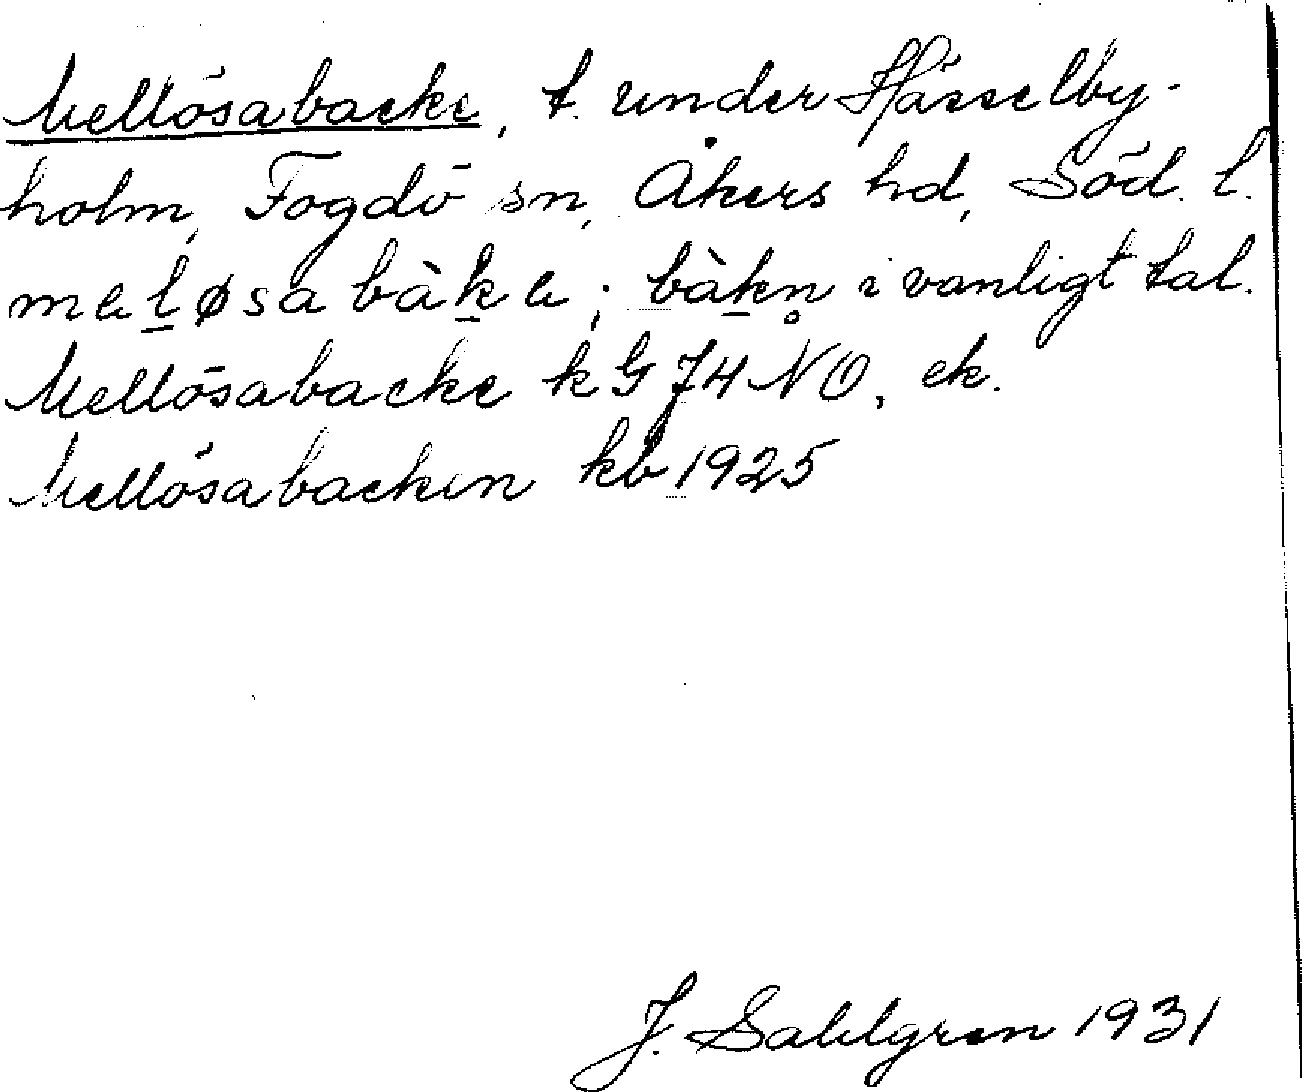 Mellösabacke, t. under Hässelby-
holm, Fogdö sn, Åkers hd, Söd. l.
mel̲øsa bàk̲e; bàk̲n̥ i vanligt tal.
Mellösabacke k G J4 NO, ek.
Mellösabacken kb 1925
J. Sahlgren 1931